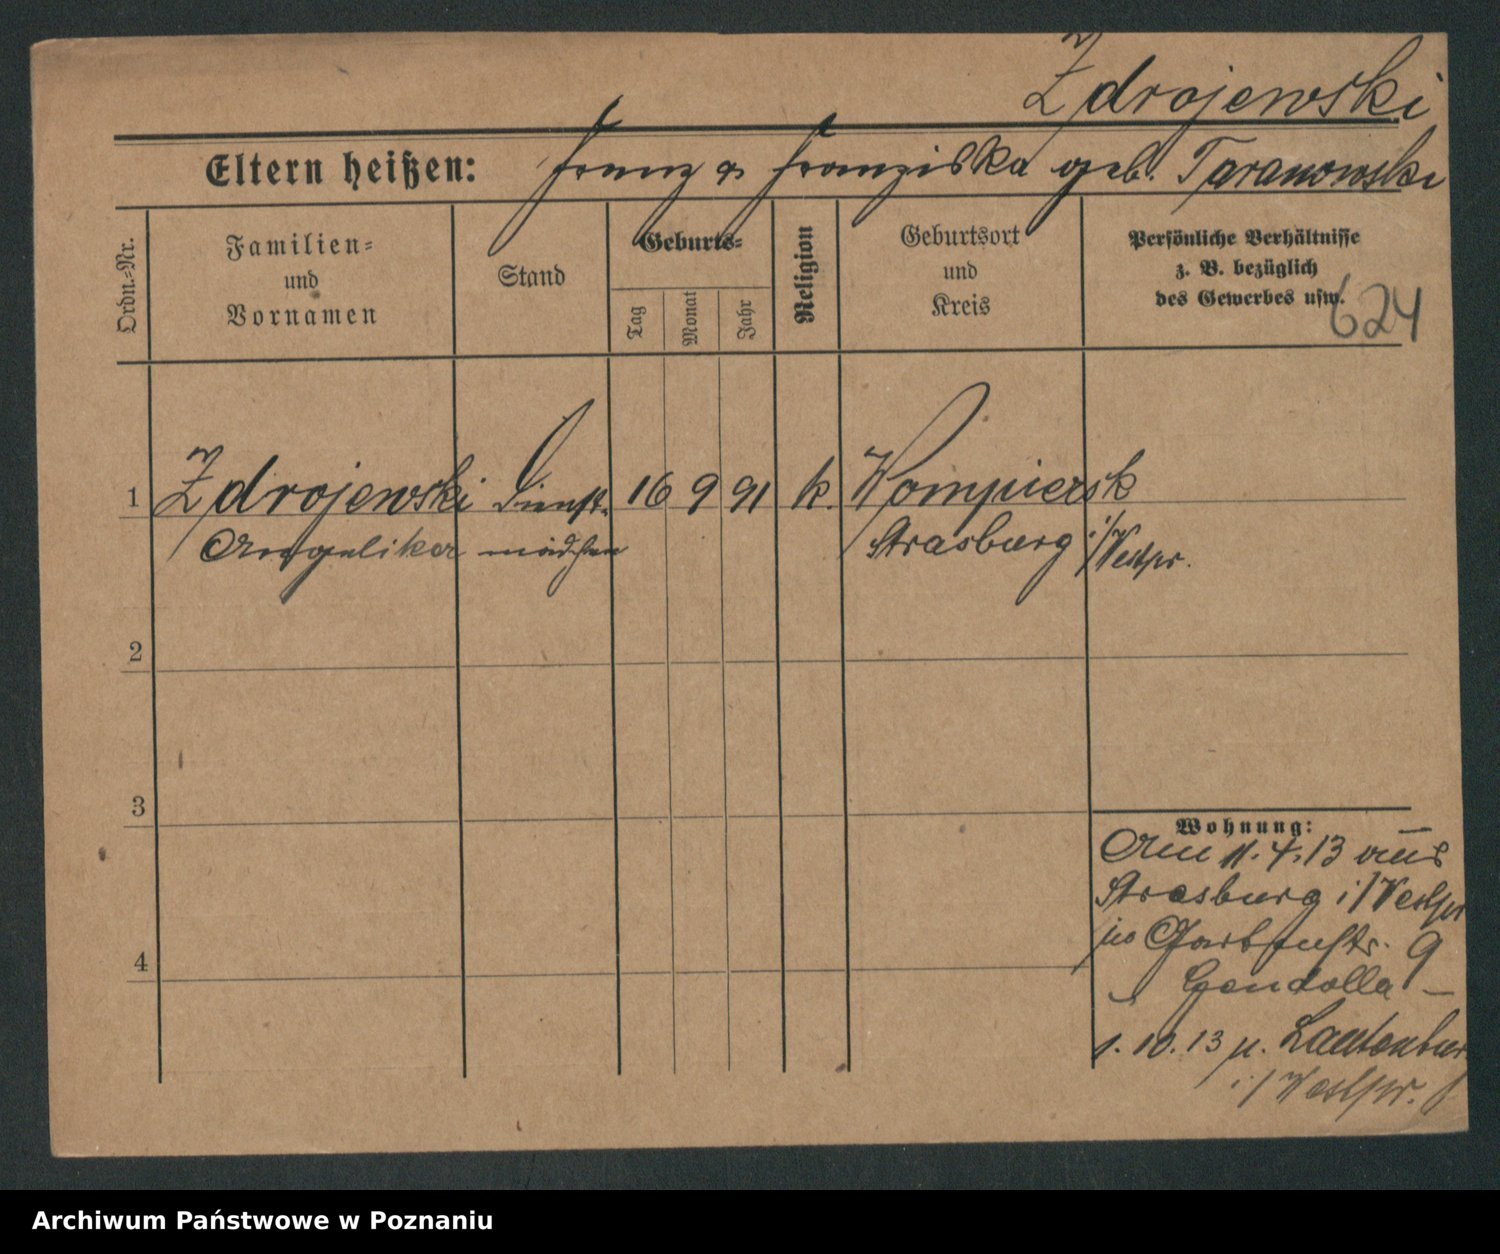 Zdrojewski
Eltern heißen: Franz & Franziska geb. Taranowski
Ordn.-Nr.
Familien-
und
Vornamen
Stand
Geburts-
Tag
Monat
Jahr
Religion
Geburtsort
und
Kreis
Persönliche Verhältnisse
z. B. bezüglich
des Gewerbes usw.
624
1 Zdrojewski Dienst- 16 9 91 k. Wompiersk
Angelika mädchen Strasburg i/Westpr.
2
3
4
Wohnung:
Am 11.4.13 aus
Strasburg i/Westpr
9
Gendolla –
1.10.13 n. Lautenbur
i/Westpr.
Archiwum Państwowe w Poznaniu